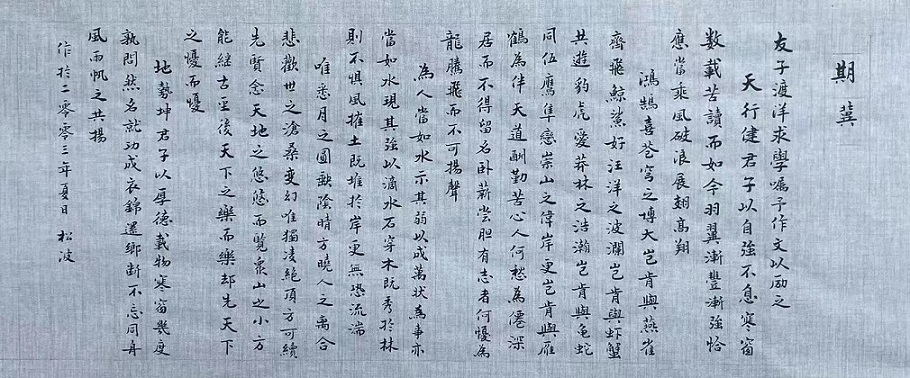 期冀
友子渡洋求學囑予作文以励之
天行健君子以自強不息寒窗
数載苦讀而如今羽翼漸豐漸強恰
應當乘風破浪展翅高翔
鴻鵠喜苍穹之博大岂肯與燕雀
齊飛鲸鯊好汪洋之波瀾岂肯與虾蟹
共遊豹虎愛莽林之浩瀚岂肯與龟蛇
同伍鷹隼戀崇山之偉岸更岂肯與雁
鶴為伴天道酬勤苦心人何愁為僊深
居而不得留名卧薪尝胆有志者何憂為
龍騰飛而不可揚聲
為人當如水示其弱以成萬状為事亦
當如水現其強以滴水石穿木既秀於林
則不惧風摧土既堆於岸更無恐流湍
唯悉月之圆缺陰晴方曉人之离合
悲歡世之滄桑变幻唯獨凌绝頂方可續
先賢念天地之悠悠而覧衆山之小方
能继古圣後天下之樂而樂却先天下
之憂而憂
地勢坤君子以厚德載物寒窗幾度
孰問然名就功成衣錦還鄉斷不忘同舟
風雨帆之共揚
作於二零零三年夏日 松波